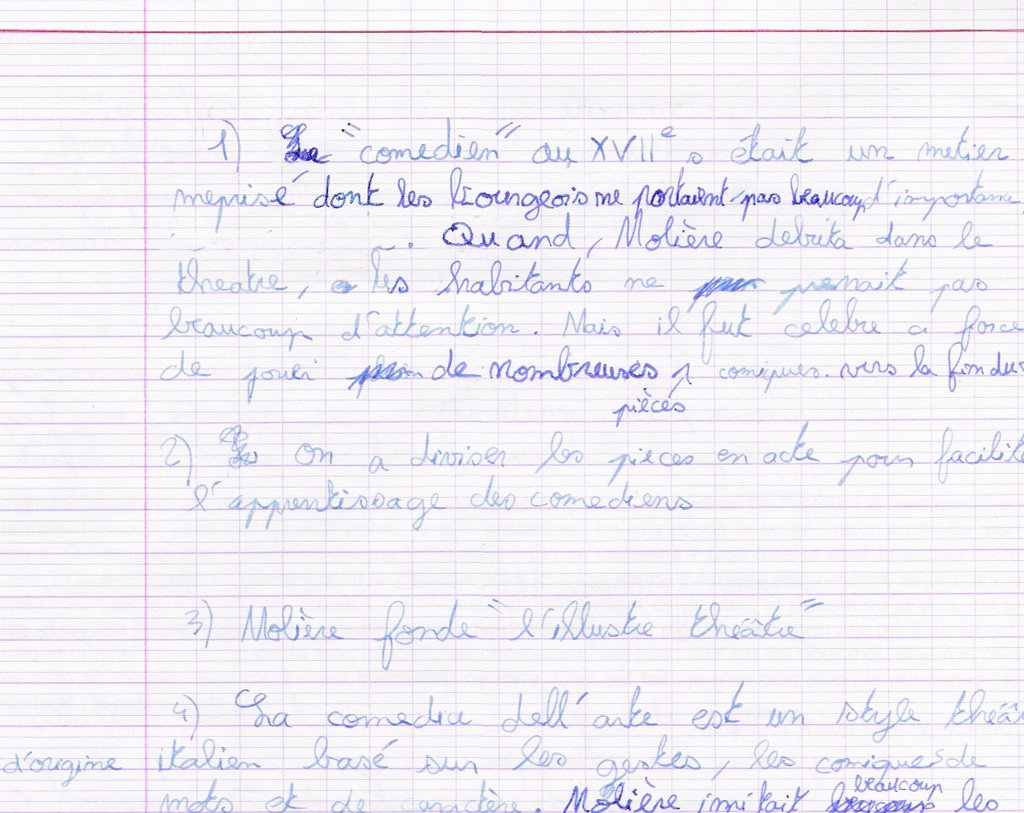 1) "comedien" au XVIIe s était un metier
meprisé dont les Bourgeois ne portaient pas beaucoup d'importanc
Quand, Molière debuta dans le
theatre, les habitants ne prenait pas
beaucoup d'attention. Mais il fut celebre a force
de jouer de nombreuses comiques. vers la fin du
pièces
2) On a diviser les pieces en acte pour facilite
l'apprentissage des comediens
3) Molière fonde "l'illustre théâtre"
4) La comedia dell'arte est un style théâ
d'origine italien basé sur les gestes, les comiques de
mots et de caractère. Molière imitait beaucoup les